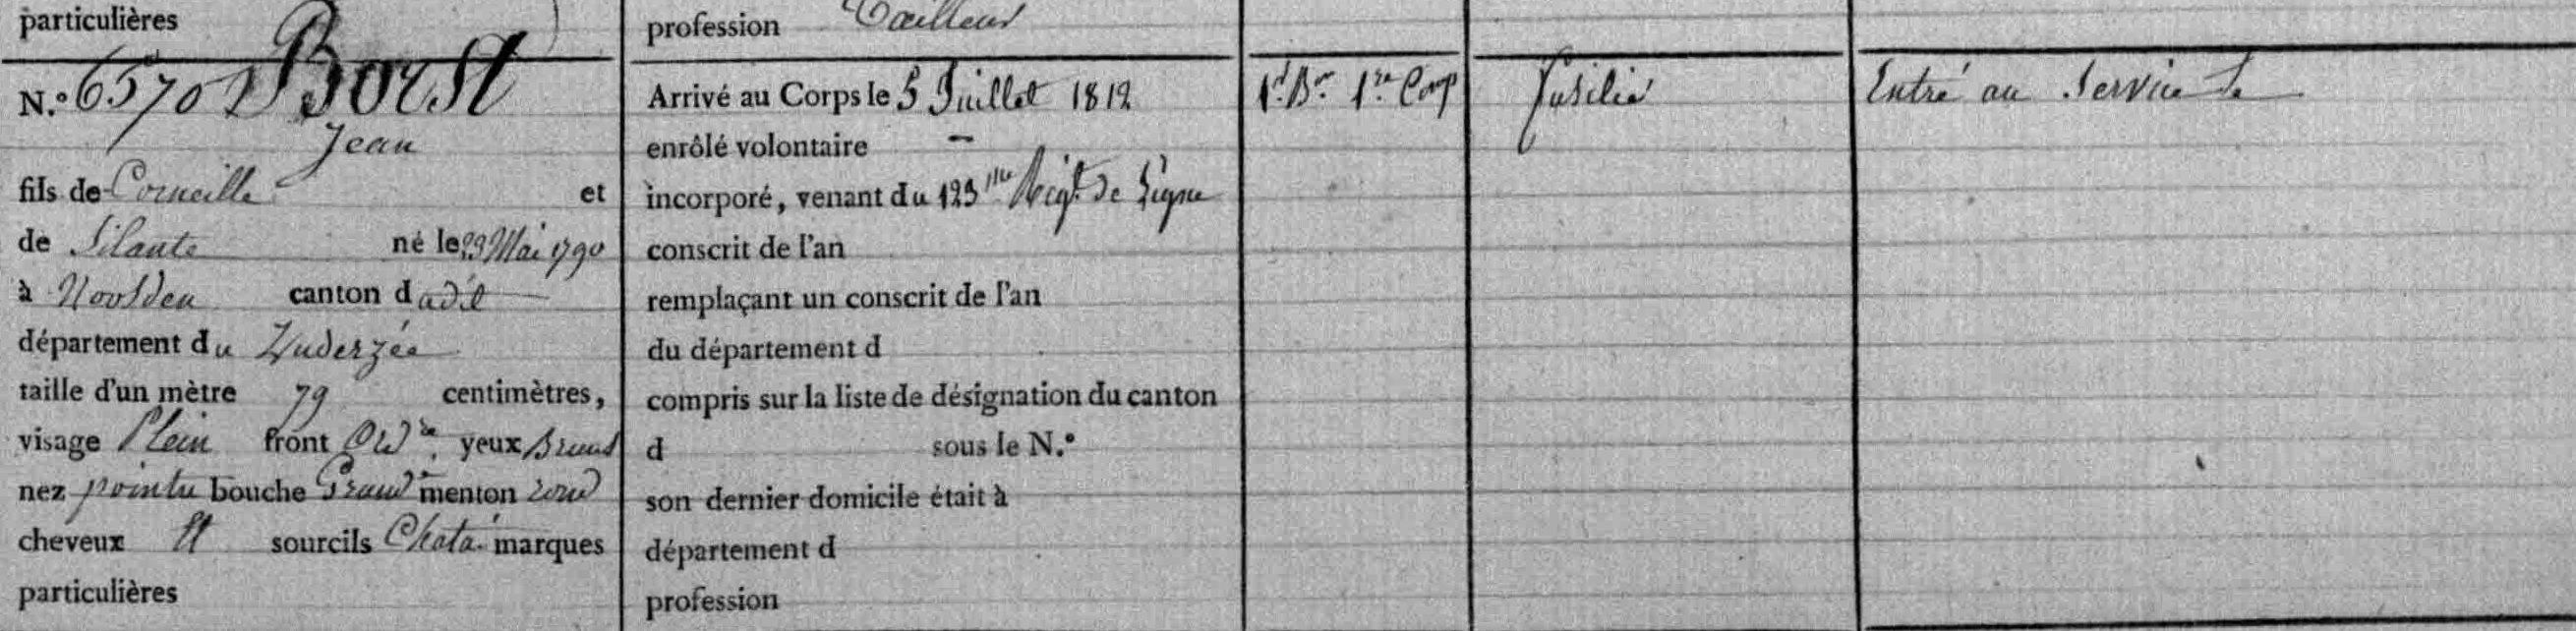 particulières
profession Tailleur
N.º 6570 Borst
Jean
fils de Corneille et
de né le 23 Mai 1790
à canton d adit
département du Zuderzée
taille d'un mètre 79 centimètres,
visage Plein front Ord.re yeux Bruns
nez pointu bouche Grand menton rond
cheveux et sourcils Chata. marques
particulières
Arrivé au Corps le 5 Juillet 1812
enrôlé volontaire –
incorporé, venant du 123me Régt. de Ligne
conscrit de l'an
remplaçant un conscrit de l'an
du département d
compris sur la liste de désignation du canton
d sous le N.º
son dernier domicile était à
département d
profession
Bon. 1re Comp
Fusilier
Entré au Service le